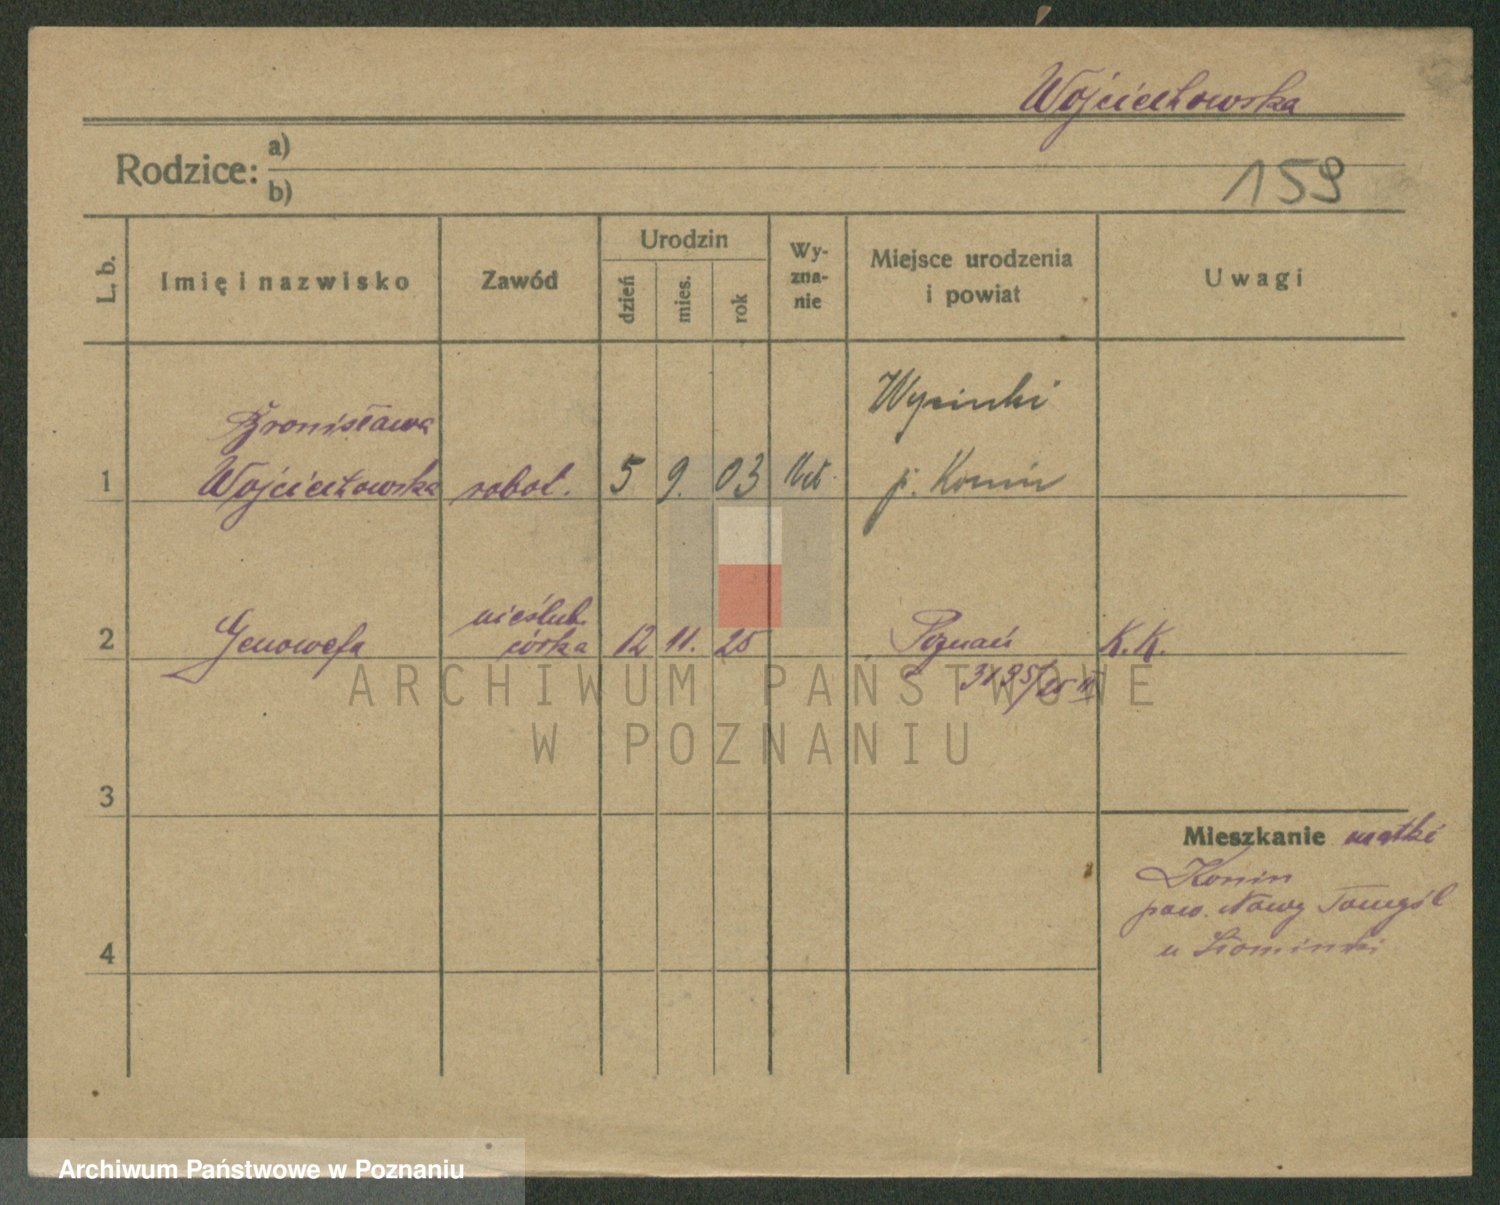 Wojciechowska
Rodzice: a)
b)
159
L. b.
Imię i nazwisko
Zawód
Urodzin
dzień
mies.
rok
Wy-
zna-
nie
Miejsce urodzenia
i powiat
Uwagi
Bronisława
Wojciechowska
1
robot.
5 9. 03
p. Konin
2
Genowefa
nieślub.
córka
12 11. 25
Poznań
K. K.
ARCHIWUM PAŃSTWOWE
W POZNANIU
3
Mieszkanie matki
Konin
pow. Nowy Tomyśl
4
Archiwum Państwowe w Poznaniu